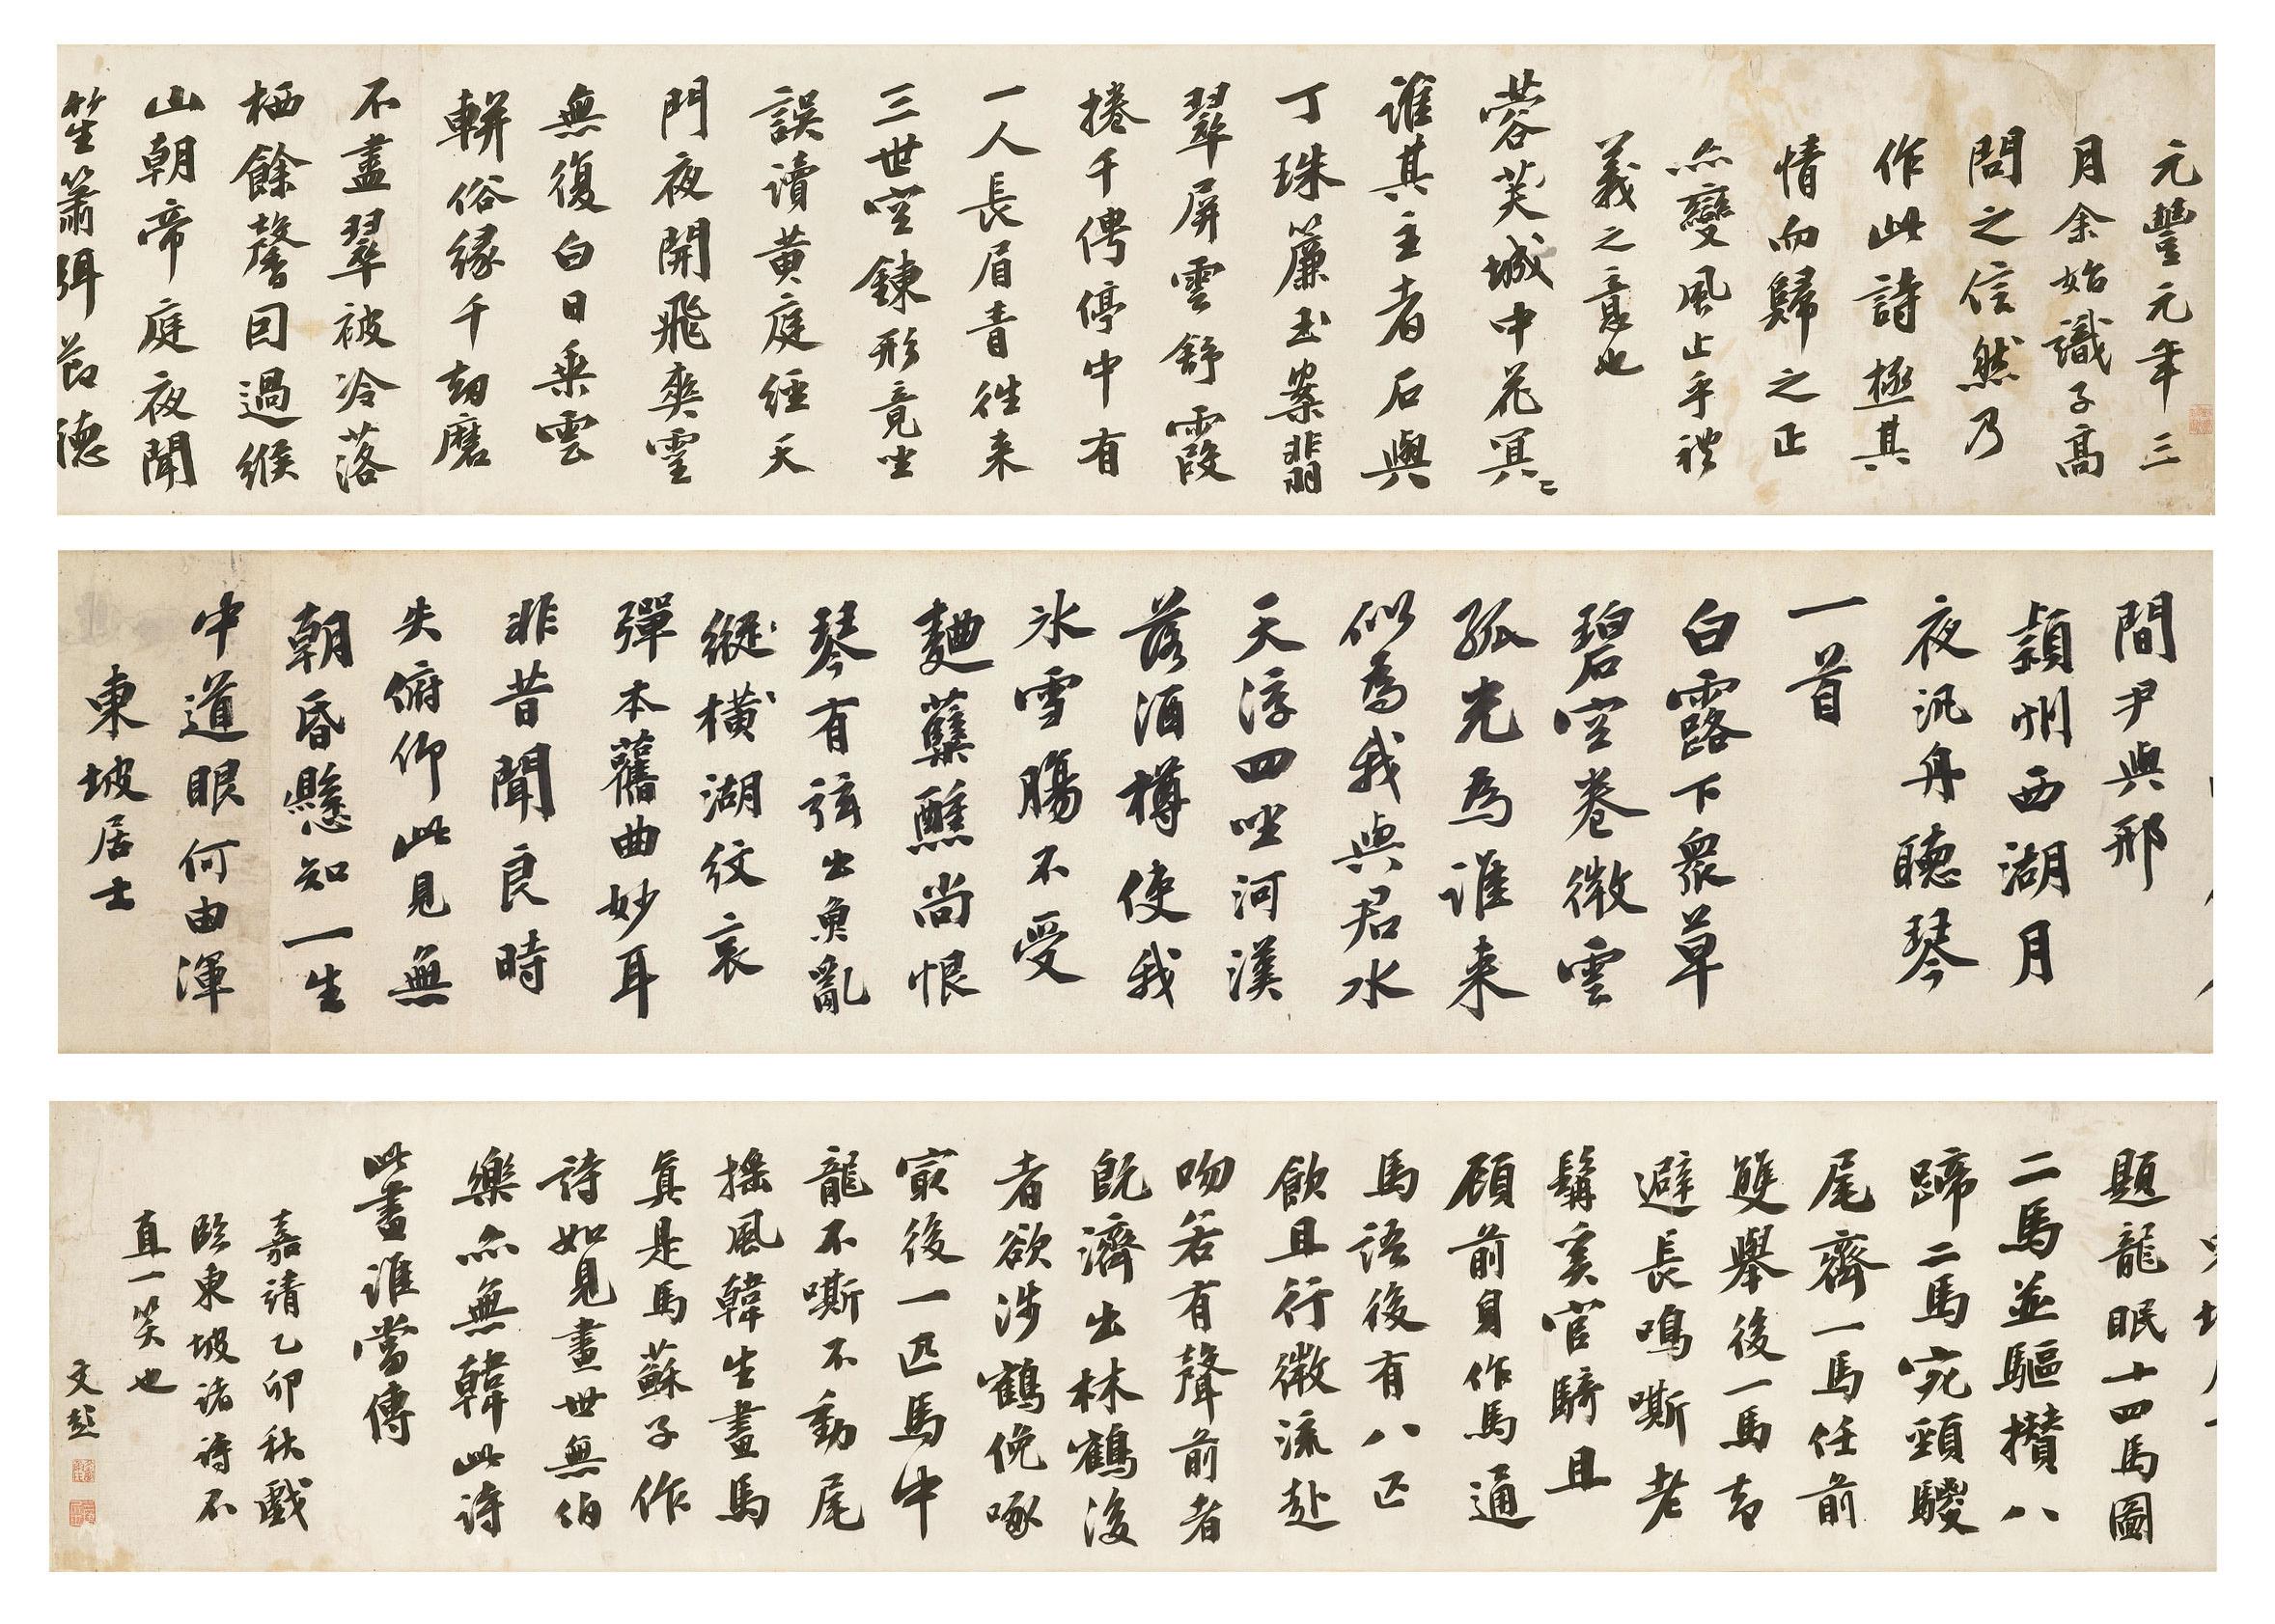 元豐元年三
月余始識子高
問之信然乃
作此詩極其
情而歸之正
亦變風止乎禮
義之意也
蓉芙城中花冥〻
誰其主者石與
丁珠簾玉案翡
翠屏雲舒霞
捲千俜停中有
一人長眉青往来
三世空鍊形竟坐
誤讀黄庭經天
門夜開飛爽靈
無復白日乗雲
軿俗緣千劫磨
不盡翠被冷落
栖餘馨囙過緱
山朝帝庭夜聞
笙簫弭節聴
間尹與邢
潁州西湖月
夜汎舟聽琴
一首
白露下衆草
碧空卷微雲
孤光為誰来
似為我與君水
天浮四坐河漢
落酒樽使我
冰雪腸不受
麯蘗醺尚恨
琴有弦出魚亂
縱橫湖紋哀
彈本舊曲妙耳
非昔聞良時
失俯仰此見無
朝昏懸知一生
中道眼何由渾
東坡居士
題龍眠十四馬圖
二馬並驅攢八
蹄二馬宛頸騣
尾齊一馬任前
雙舉後一馬却
避長鳴嘶老
髯奚官騎且
顧前身作馬通
馬語後有八匹
飲且行微流赴
吻若有聲前者
既濟出林鶴後
者欲涉鶴俛啄
冣後一匹馬中
龍不嘶不動尾
揺風韓生畫馬
真是馬蘇子作
詩如見畫世無伯
樂亦無韓此詩
此畫誰當傳
嘉靖乙卯秋戲
臨東坡諸詩不
直一笑也
文彭